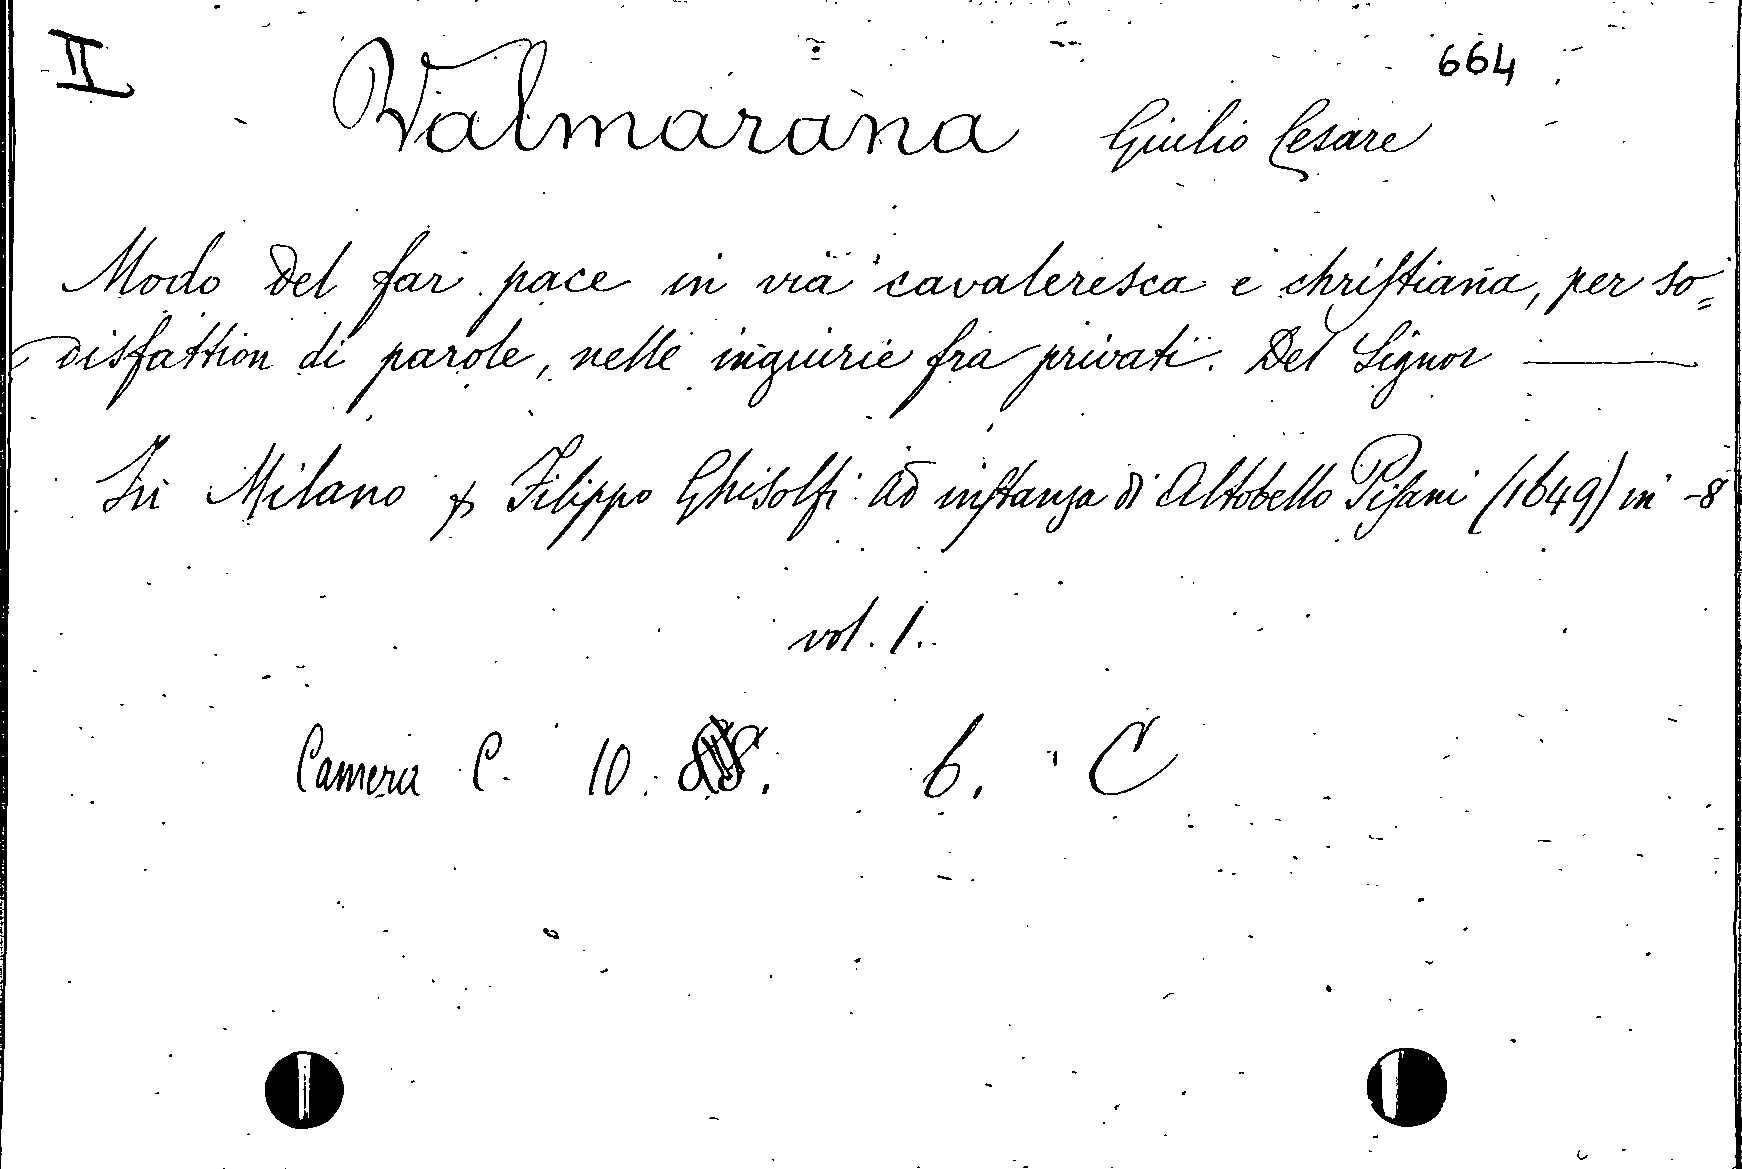 II
664
Valmarana Giulio Cesare
Modo del far pace in via cavaleresca e christiana, per so=
disfattion di parole, nelle ingiurie fra privati. Del Signor ——
In Milano per Filippo Ghisolfi ad instanza di Altobello Pisani (1649) in -8
vol. 1.
Camera C. 10. 6. C